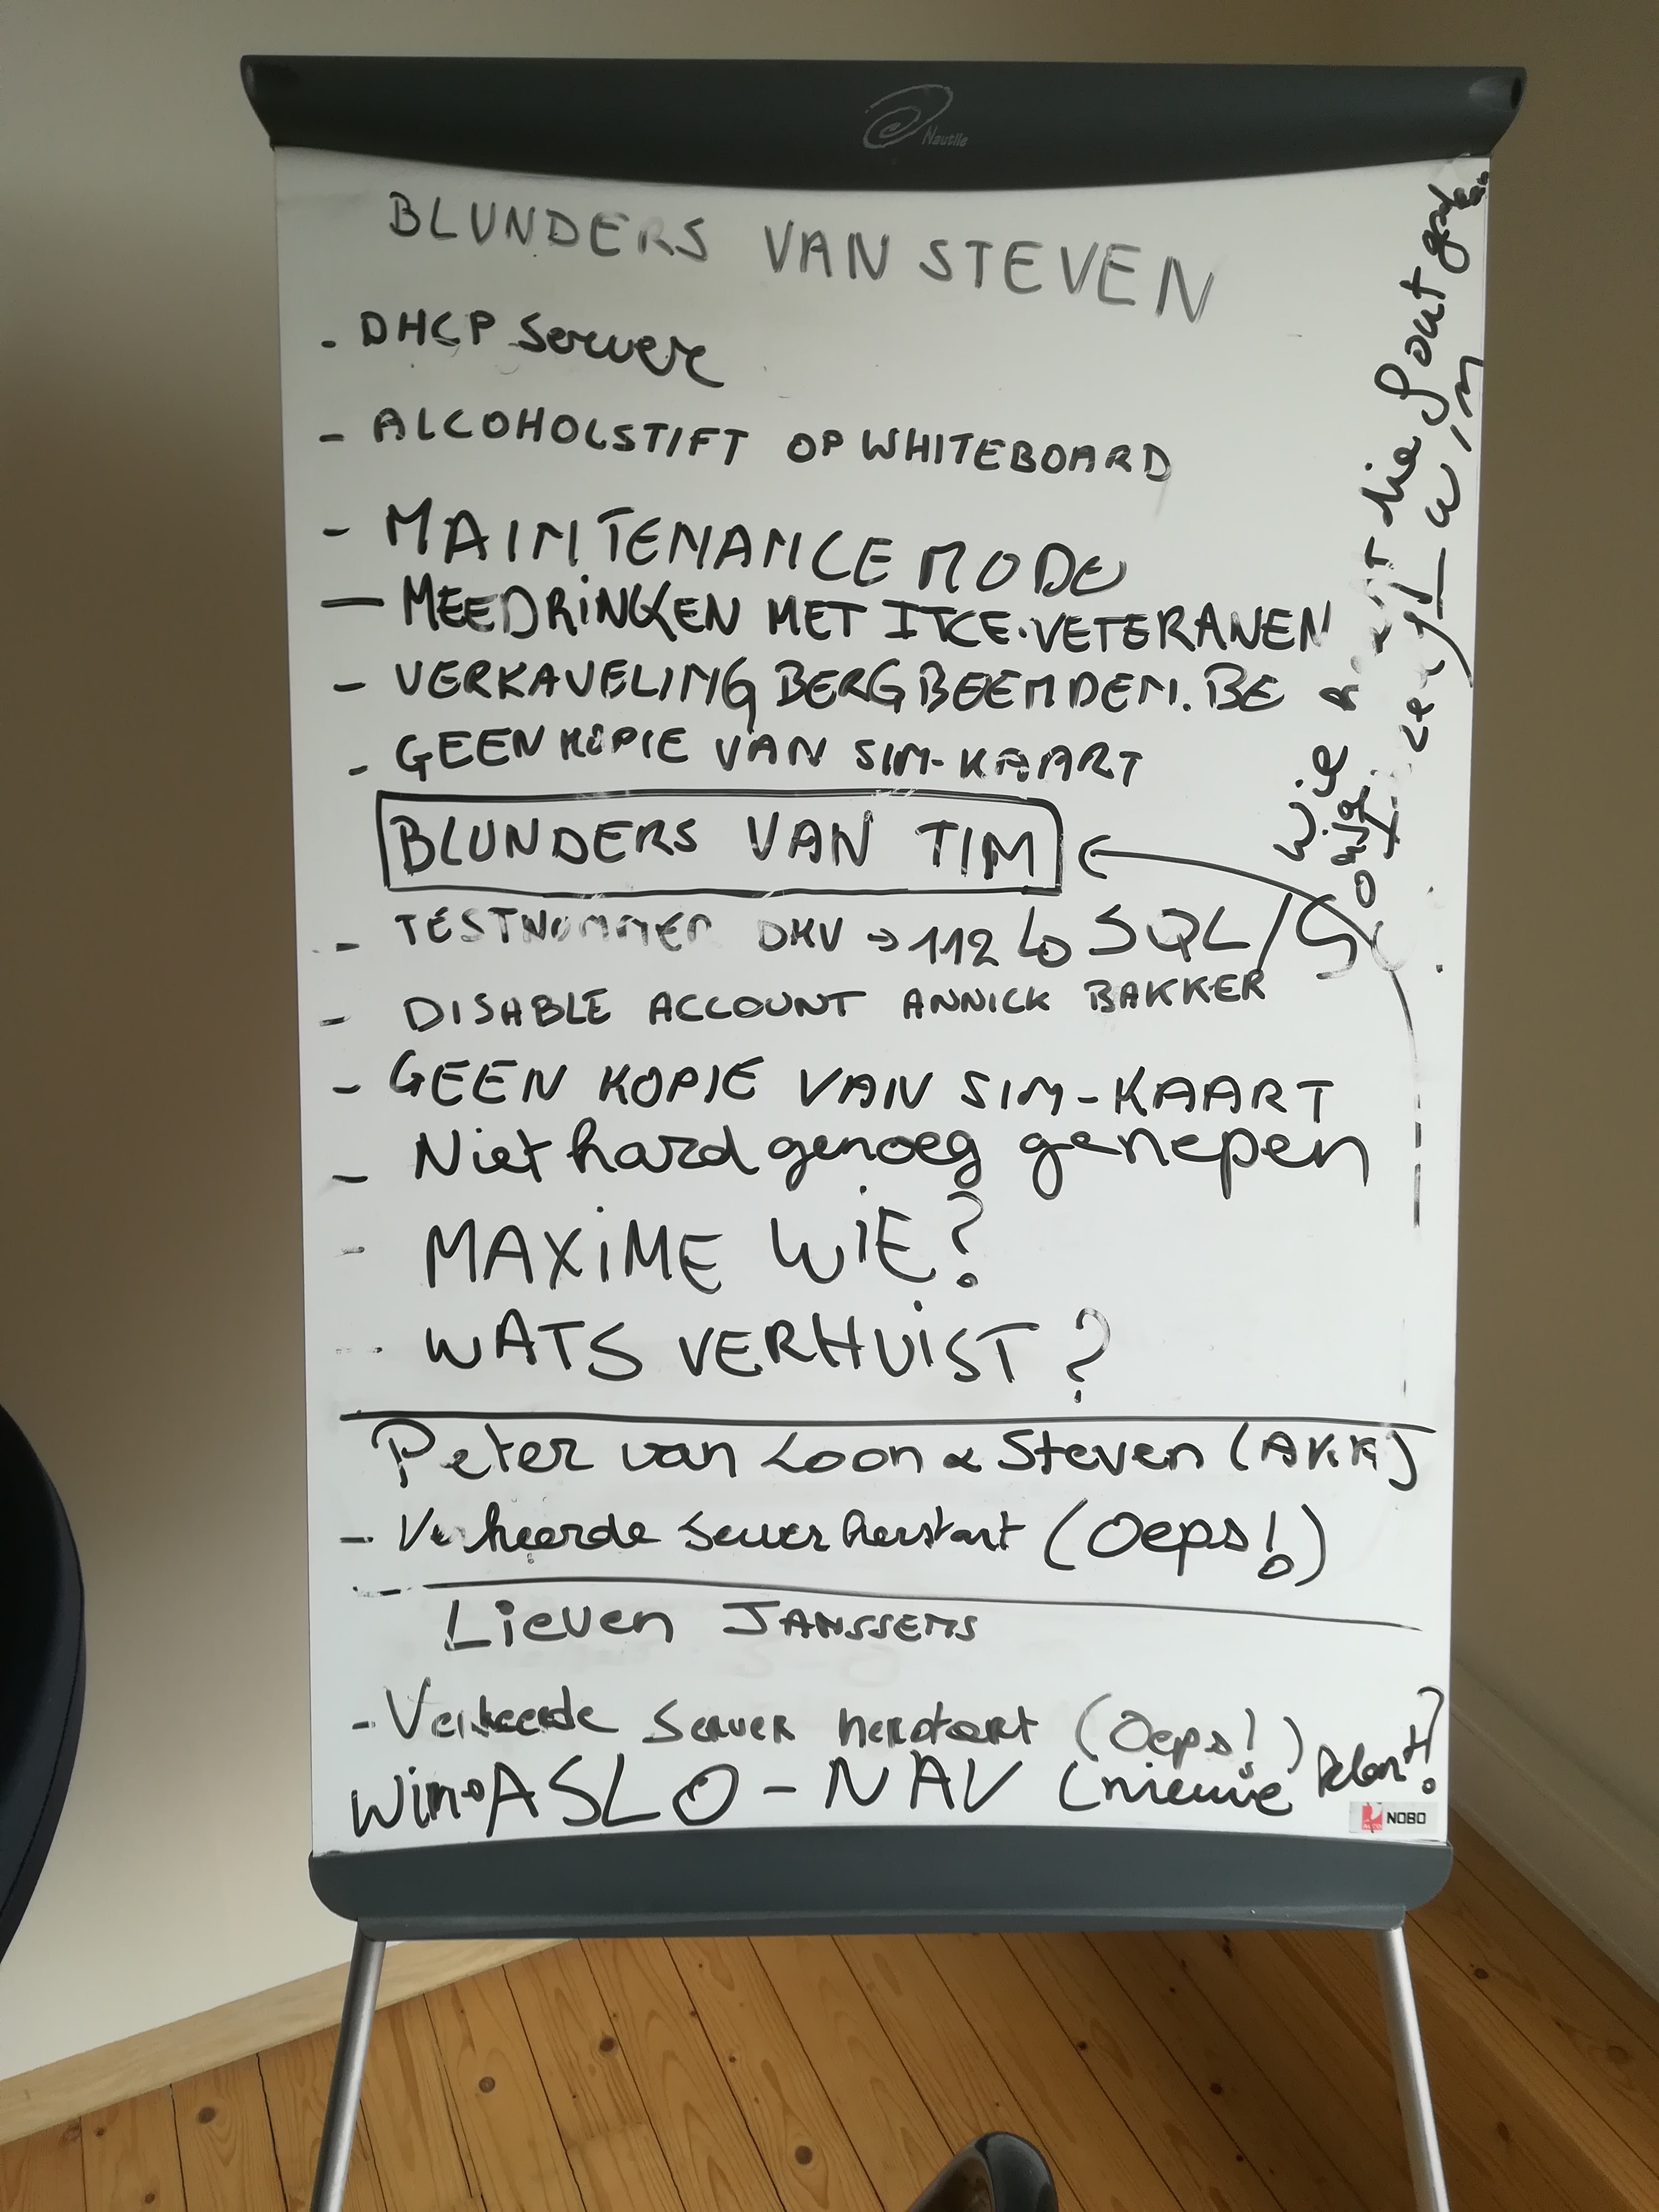 Nautile
BLUNDERS VAN STEVEN
- DHCP Server
- ALCOHOLSTIFT OP WHITEBOARD
- MAINTENANCE MODE
- MEEDRINKEN MET ITCE-VETERANEN
- VERKAVELING BERGBEEMDEN.BE
- GEEN KOPIE VAN SIM-KAART
BLUNDERS VAN TIM
- TESTNUMMER DKV → 112 ↳ SQL/
- DISABLE ACCOUNT ANNICK BAKKER
- GEEN KOPIE VAN SIM-KAART
- Niet hard genoeg genepen
- MAXIME WIE?
- WATS VERHUIST?
Peter van Loon & Steven (AKK)
- Verkeerde Server herstart (Oeps!)
Lieven JANSSENS
- Verkeerde Server herstart (Oeps!)
Wim → ASLO - NAV (nieuwe
Wie die fout
NOBO